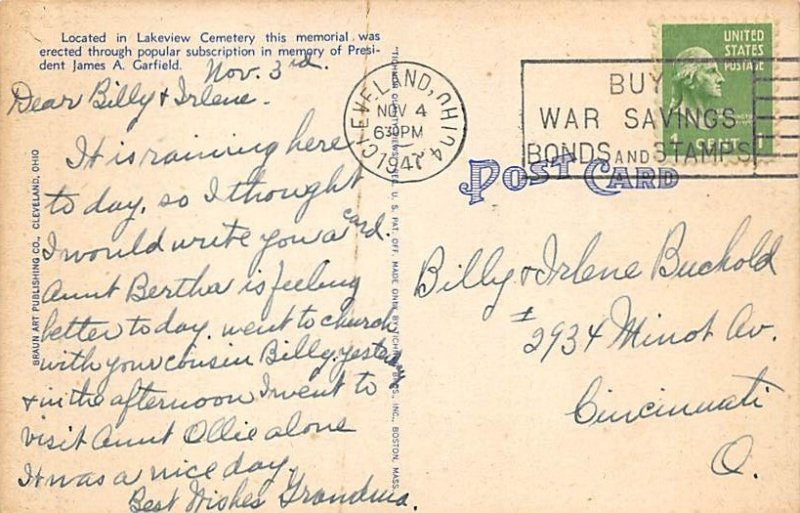 Located in Lakeview Cemetery this memorial was
erected through popular subscription in memory of Presi-
dent James A. Garfield.
Nov. 3rd.
Dear Billy & Irlene.
It is raining here
to day. so I thought
I would write you a card.
Aunt Bertha is feeling
better to day. went to church
with your cousin Billy. yesterday
& in the afternoon I went to
visit Aunt Ollie alone
It was a nice day.
Best Wishes Grandma.
BRAUN ART PUBLISHING CO., CLEVELAND, OHIO
"TICHNOR QUALITY VIEWS," REG. U. S. PAT. OFF. MADE ONLY BY TICHNOR BROS., INC., BOSTON, MASS.
CLEVELAND, OHIO
NOV 4
630PM
BUY
WAR SAVINGS
BONDS AND STAMPS
UNITED
STATES
POSTAGE
1 CENT 1
POST CARD
Billy & Irlene Buchold
# 2934 Minot Av.
Cincinnati
O.